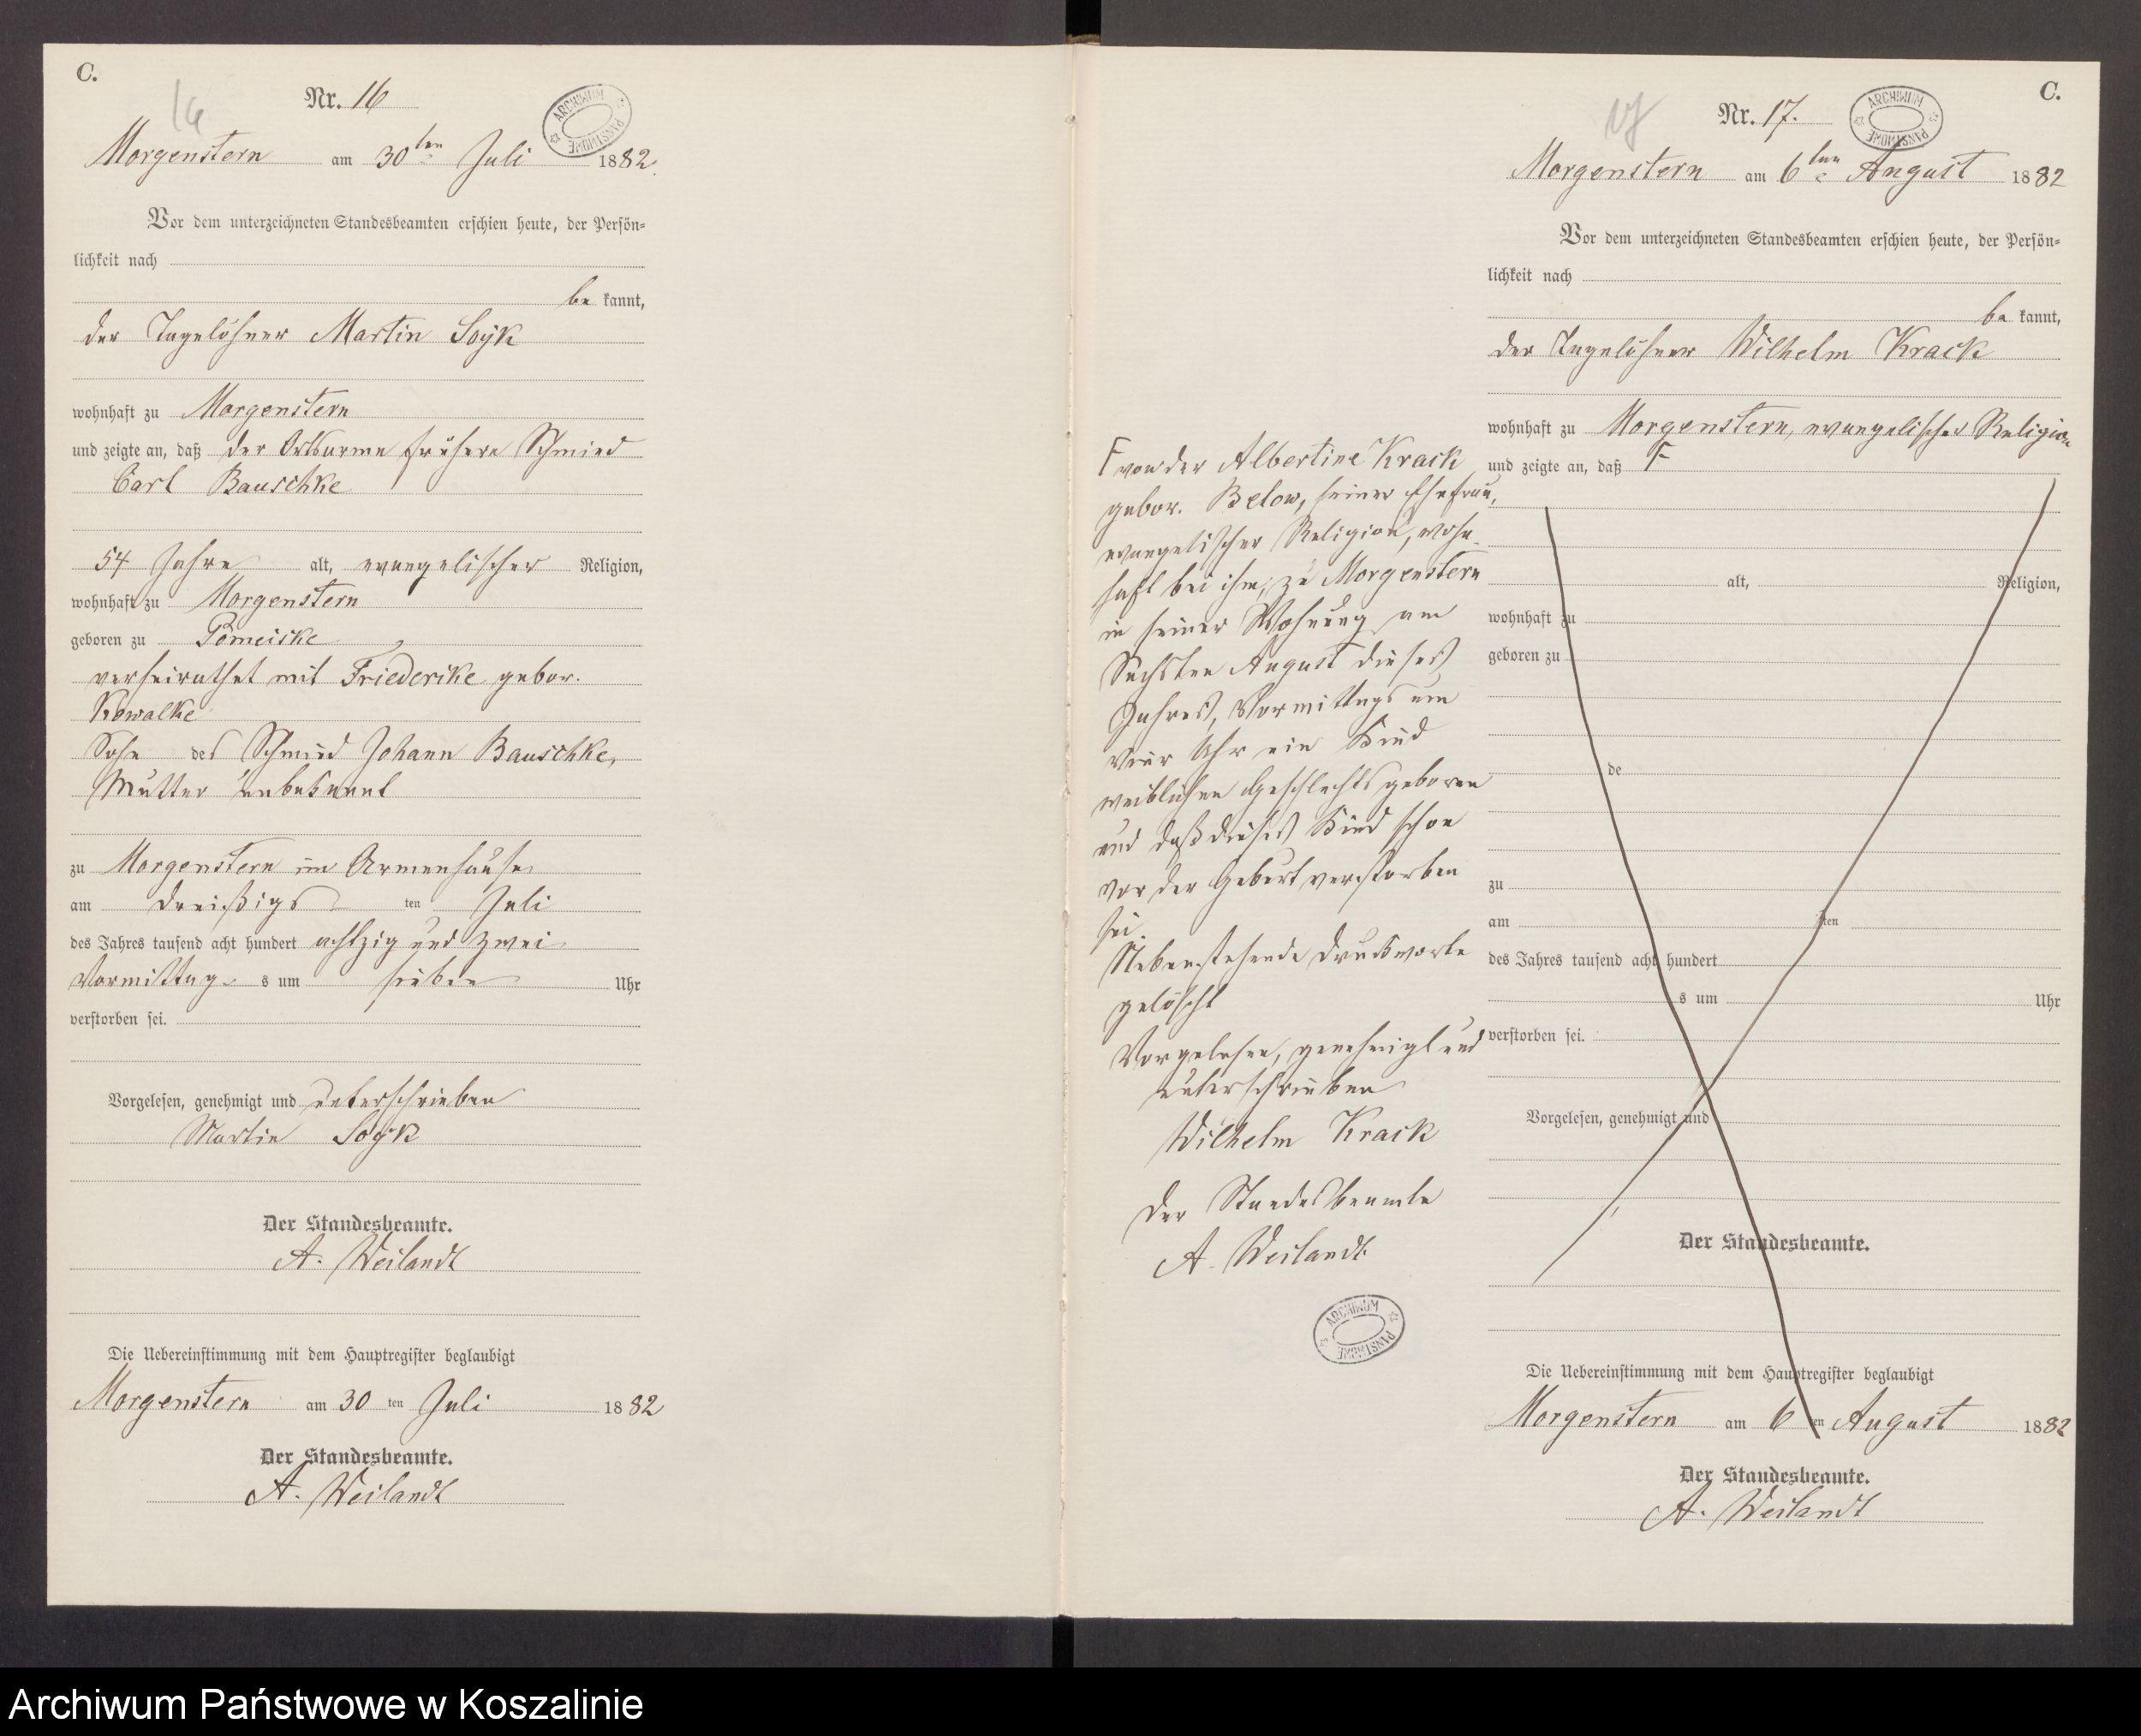 C.
16
Nr. 16
ARCHIWUM PAŃSTWOWE
Morgenstern am 30ten Juli 1882.
Vor dem unterzeichneten Standesbeamten erschien heute, der Persön-
lichkeit nach
be kannt,
der Tagelöhner Martin Soÿk
wohnhaft zu Morgenstern
und zeigte an, daß der Ortsarme frühere Schmied
Carl Bauschke
54 Jahre alt, evangelischer Religion,
wohnhaft zu Morgenstern
geboren zu Pomeiske
verheirathet mit Friederike gebor.
Kowalke
Sohn des Schmied Johann Bauschke,
Mutter unbekannt
zu Morgenstern im Armenhause
am dreißigs ten Juli
des Jahres tausend acht hundert achtzig und zwei
Vormittag s um sieben Uhr
verstorben sei.
Vorgelesen, genehmigt und unterschrieben
Martin Soÿk
Der Standesbeamte.
A. Weilandt
Die Uebereinstimmung mit dem Hauptregister beglaubigt
Morgenstern am 30 ten Juli 1882
Der Standesbeamte.
A. Weilandt
C.
17
Nr. 17.
ARCHIWUM PAŃSTWOWE
Morgenstern am 6ten August 1882
Vor dem unterzeichneten Standesbeamten erschien heute, der Persön-
lichkeit nach
be kannt,
der Tagelöhner Wilhelm Krack
wohnhaft zu Morgenstern, evangelischer Religion
und zeigte an, daß F
F von der Albertine Krack
gebor. Below, seiner Ehefrau,
evangelischer Religion, wohn-
haft bei ihm, zu Morgenstern
in seiner Wohnung am
Sechsten August dieses
Jahres, Vormittags um
vier Uhr ein Kind
weiblichen Geschlechts geboren
und daß dieses Kind schon
vor der Geburt verstorben
sei.
Nebenstehende Druckworte
gelöscht
Vorgelesen, genehmigt und
unterschrieben
Wilhelm Krack
Der Standesbeamte
A. Weilandt.
ARCHIWUM PAŃSTWOWE
alt, Religion,
wohnhaft zu
geboren zu
de
zu
am ten
des Jahres tausend acht hundert
s um Uhr
verstorben sei.
Vorgelesen, genehmigt und
Der Standesbeamte.
Die Uebereinstimmung mit dem Hauptregister beglaubigt
Morgenstern am 6 ten August 1882
Der Standesbeamte.
A. Weilandt
Archiwum Państwowe w Koszalinie